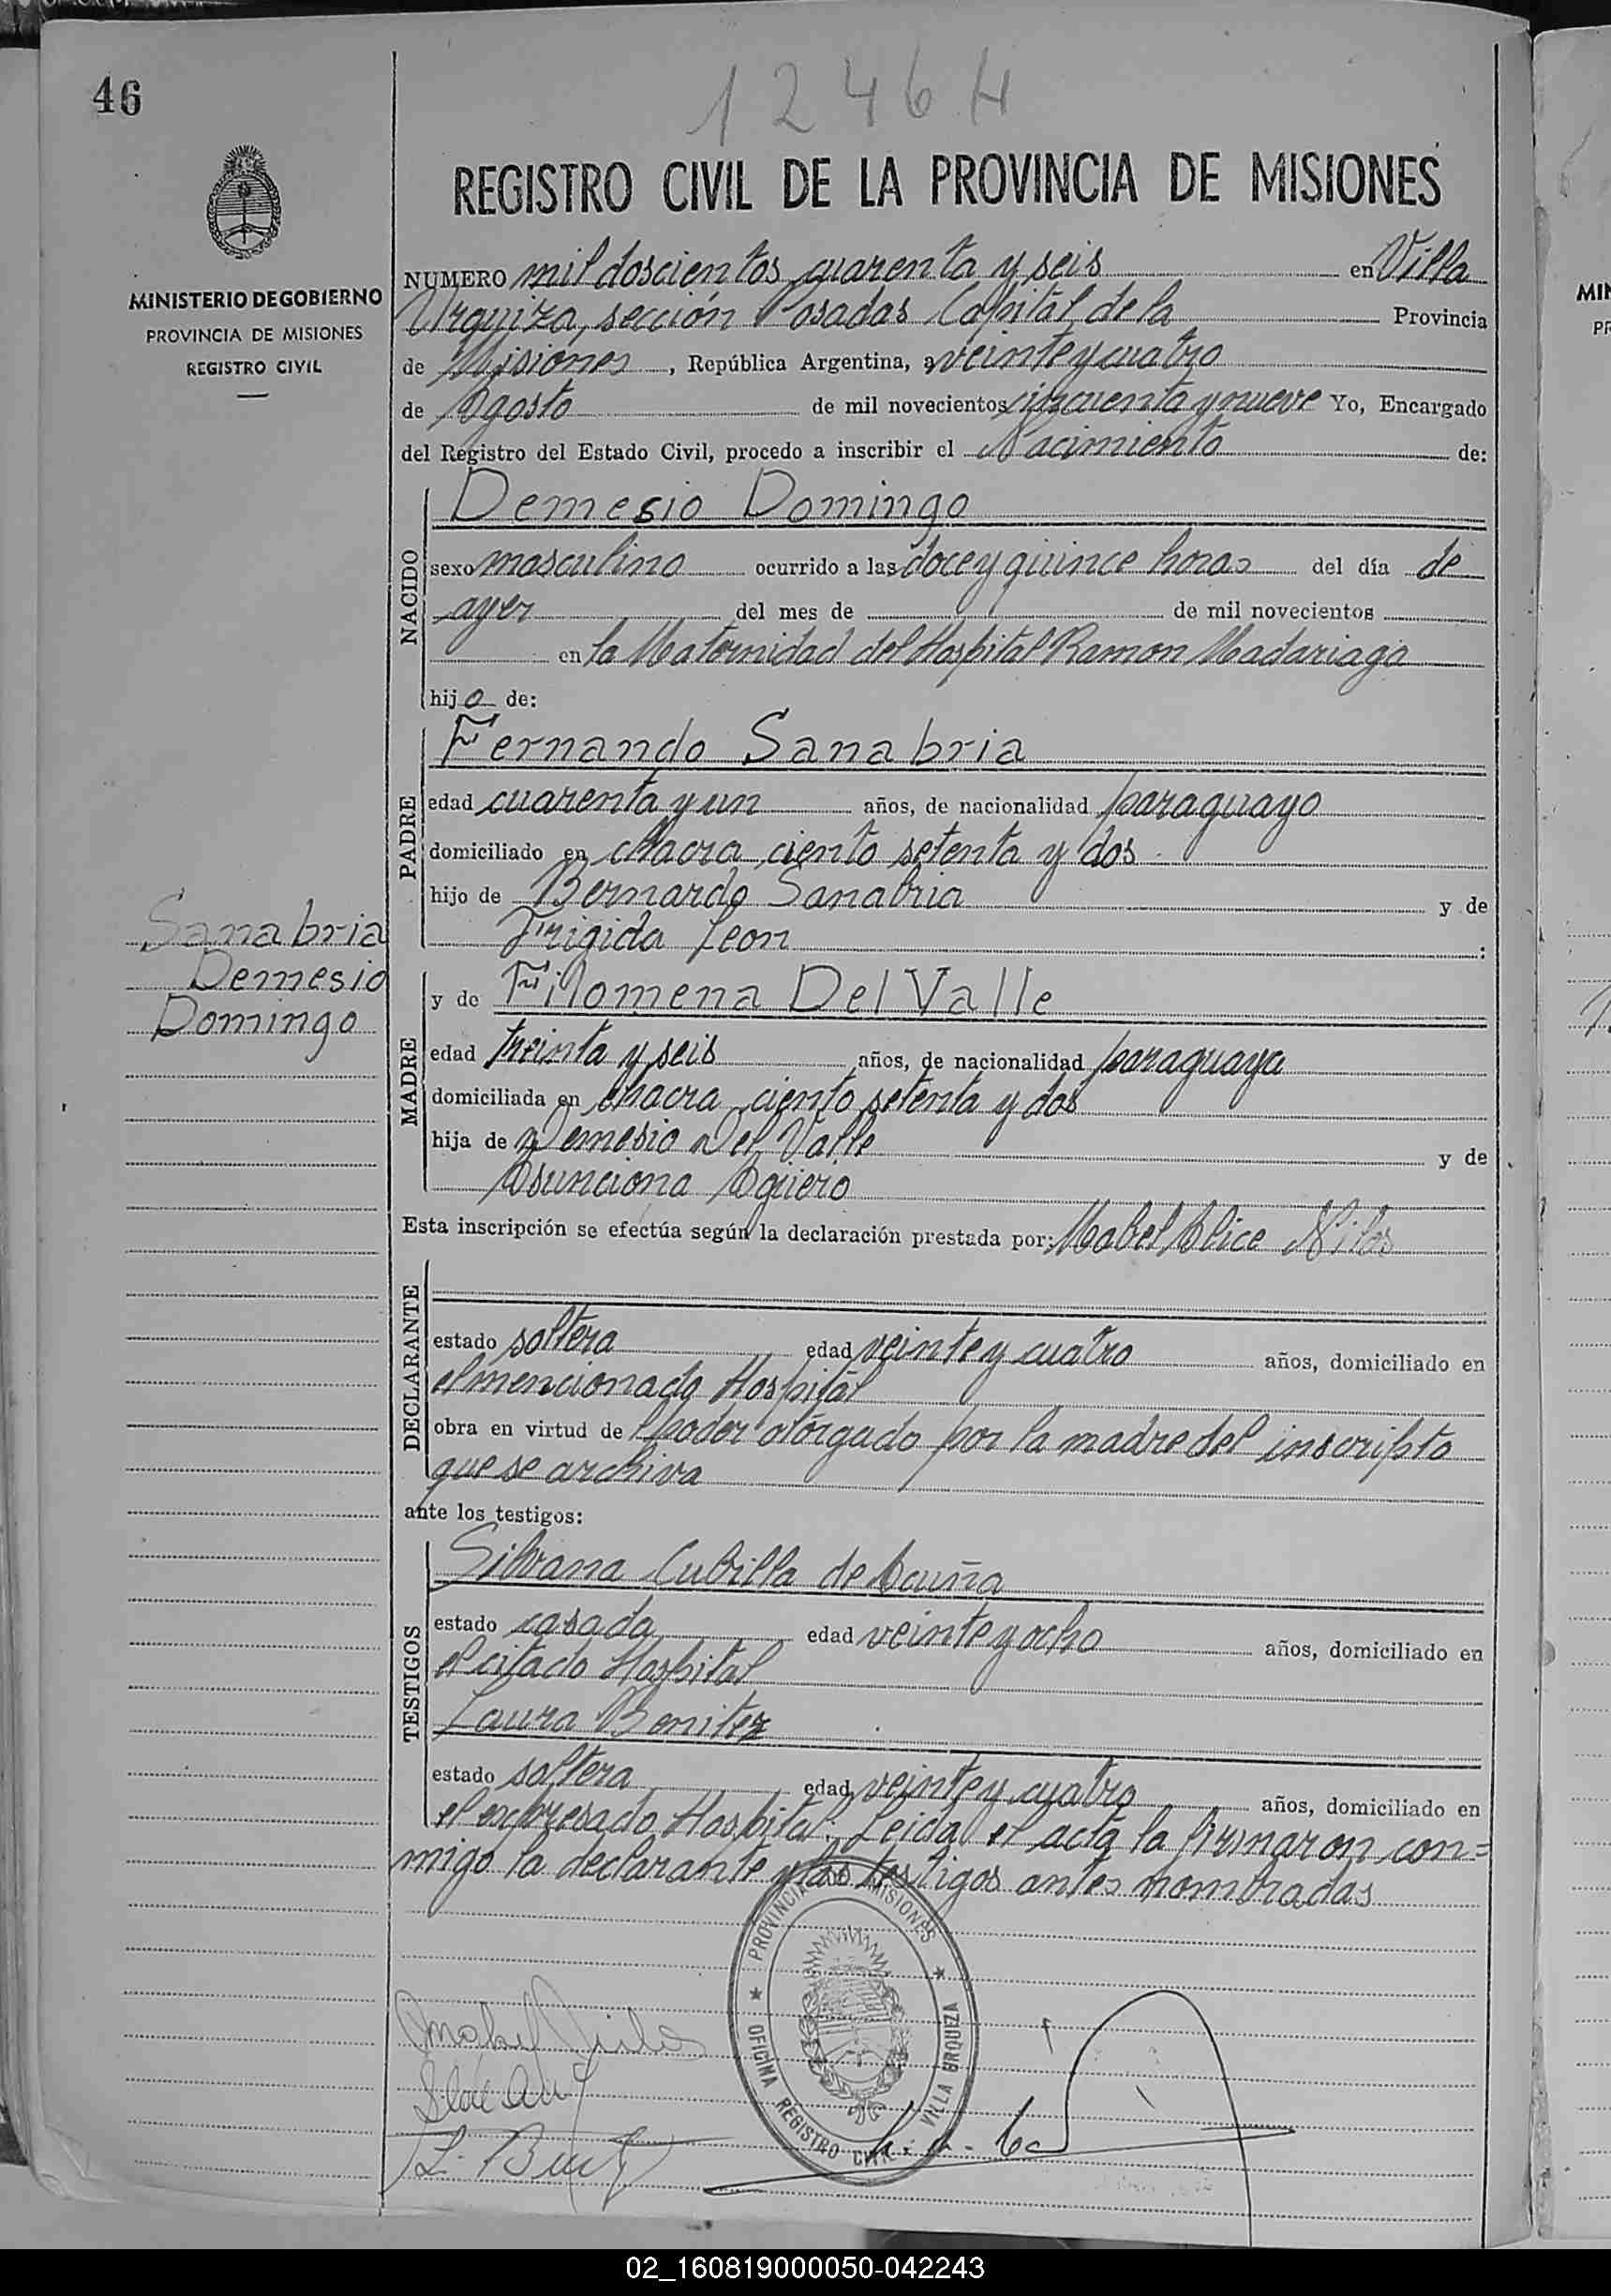 46
1246 H
REGISTRO CIVIL DE LA PROVINCIA DE MISIONES
MINISTERIO DE GOBIERNO
PROVINCIA DE MISIONES
REGISTRO CIVIL
NUMERO mil doscientos cuarenta y seis en Villa
Urquiza, sección Posadas Capital de la Provincia
de Misiones, República Argentina, a veinte y cuatro
de Agosto de mil novecientos cincuenta y nueve Yo, Encargado
del Registro del Estado Civil, procedo a inscribir el Nacimiento de:
NACIDO
Demesio Domingo
sexo masculino ocurrido a las doce y quince horas del día de
ayer del mes de de mil novecientos
en la Maternidad del Hospital Ramon Madariaga
hijo de:
PADRE
Fernando Sanabria
edad cuarenta y un años, de nacionalidad paraguayo
domiciliado en chacra ciento setenta y dos
hijo de Bernardo Sanabria y de
Frigida Leon :
Sanabria
Demesio
Domingo
MADRE
y de Filomena Del Valle
edad treinta y seis años, de nacionalidad paraguaya
domiciliada en chacra ciento setenta y dos
hija de Demesio Del Valle y de
Asunciona Agüero
Esta inscripción se efectúa según la declaración prestada por: Mabel Alice
DECLARANTE
estado soltera edad veinte y cuatro años, domiciliado en
el mencionado Hospital
obra en virtud de poder otorgado por la madre del inscripto
que se archiva
ante los testigos:
TESTIGOS
Silvana Cubilla de Acuña
estado casada edad veinte y ocho años, domiciliado en
el citado Hospital
Laura Benitez
estado soltera edad veinte y cuatro años, domiciliado en
el expresado Hospital. Leida el acta la firmaron con=
migo la declarante y las testigos antes nombradas
PROVINCIA DE MISIONES
OFICINA REGISTRO CIVIL VILLA URQUIZA
02_160819000050-042243